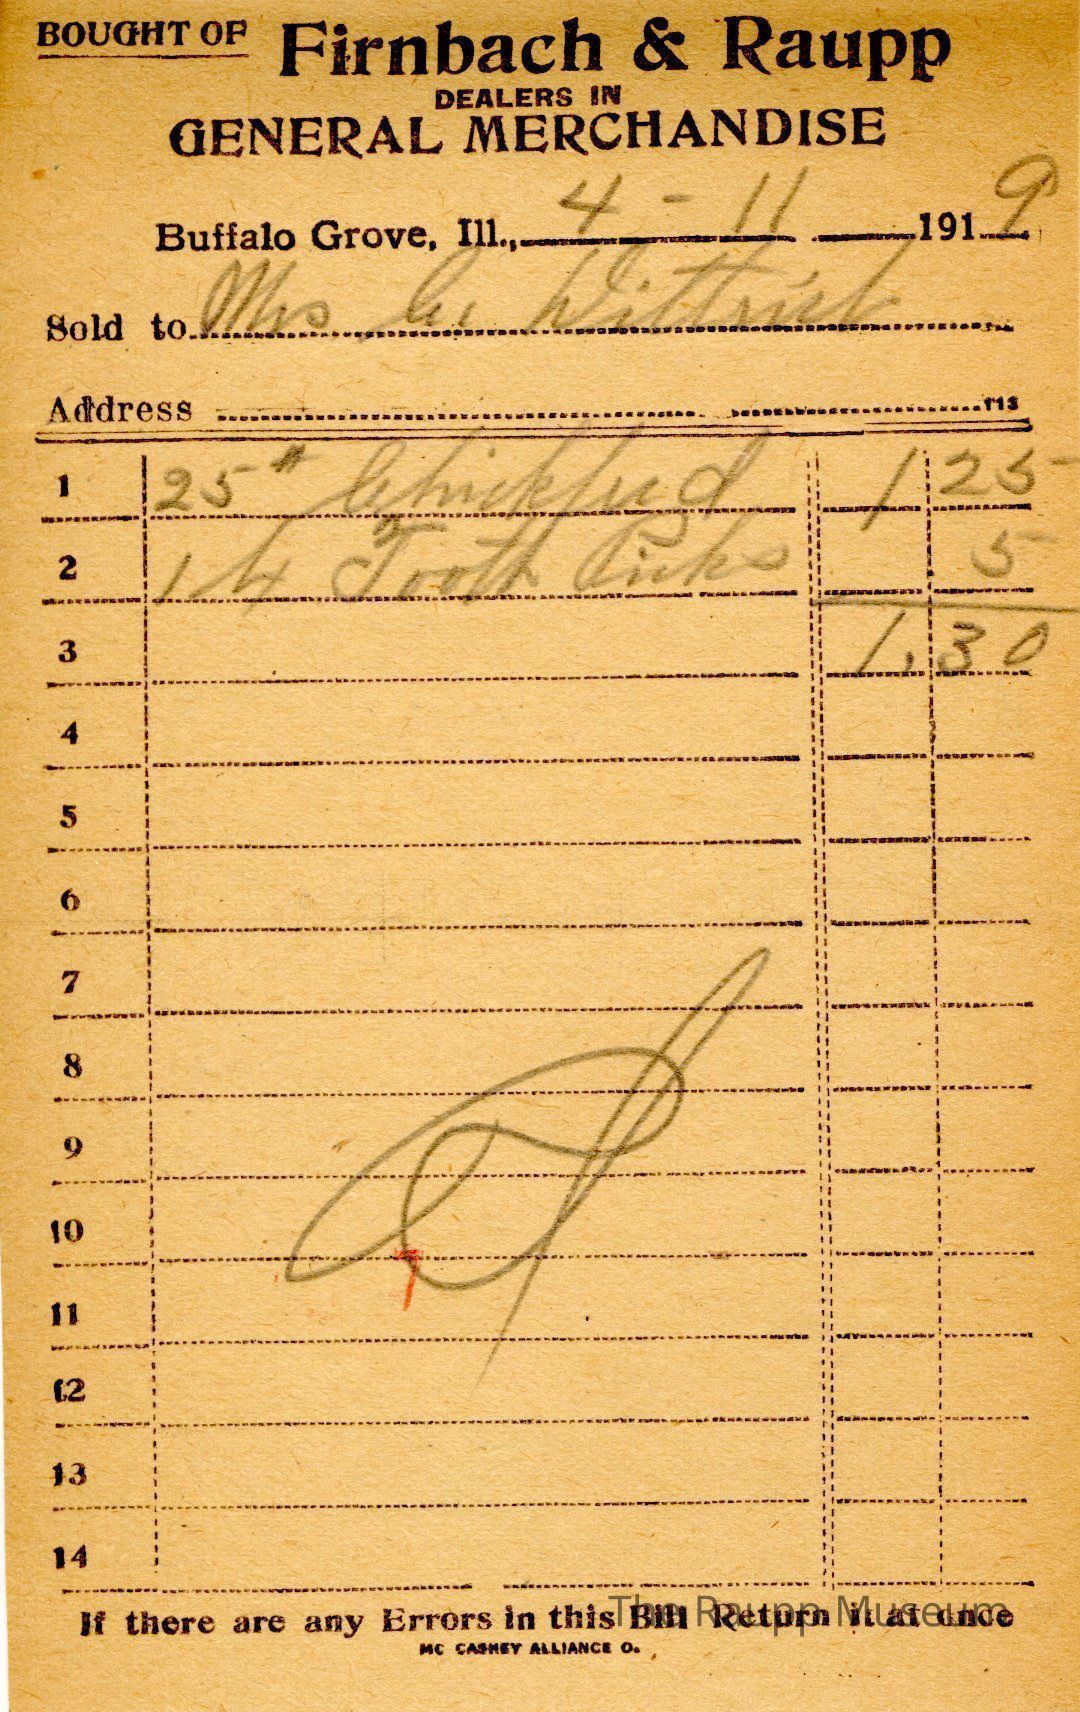 BOUGHT OF Firnbach & Raupp
DEALERS IN
GENERAL MERCHANDISE
Buffalo Grove, Ill., 4 - 11 1919
Sold to Mrs Wittrich
Address 113
1 25# Chickfeed 1 25
2 Tooth Picks 5
3 1.30
4
5
6
7
8
9
10
11
12
13
14
If there are any Errors in this Bill Return it at once
The Raupp Museum
MC CASKEY ALLIANCE O.